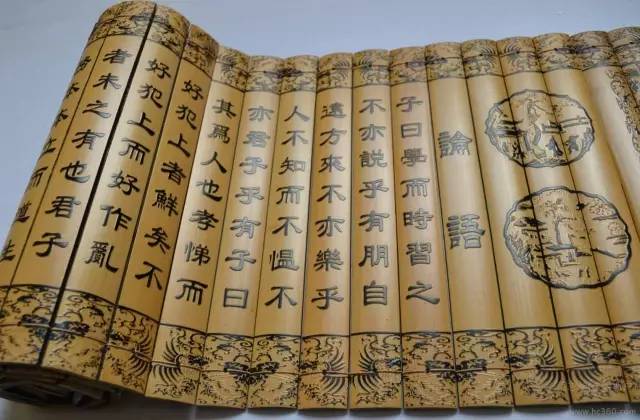 論語
子曰學而時習之
不亦說乎有朋自
遠方來不亦樂乎
人不知而不愠不
亦君子乎有子曰
其爲人也孝悌而
好犯上者鮮矣不
好犯上而好作亂
者未之有也君子
本立而道生
www.hc360.com